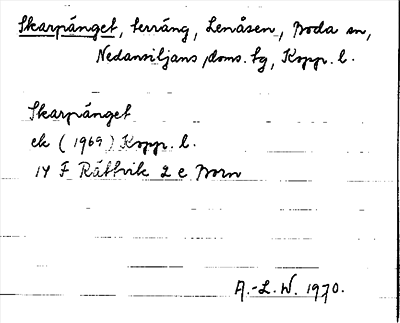 Skarpänget, terräng, Lenåsen, Boda sn,
Nedansiljans doms. tg, Kopp. l.
Skarpänget
ek (1969) Kopp. l.
14 F Rättvik 2 e Born
A.-L. W. 1970.